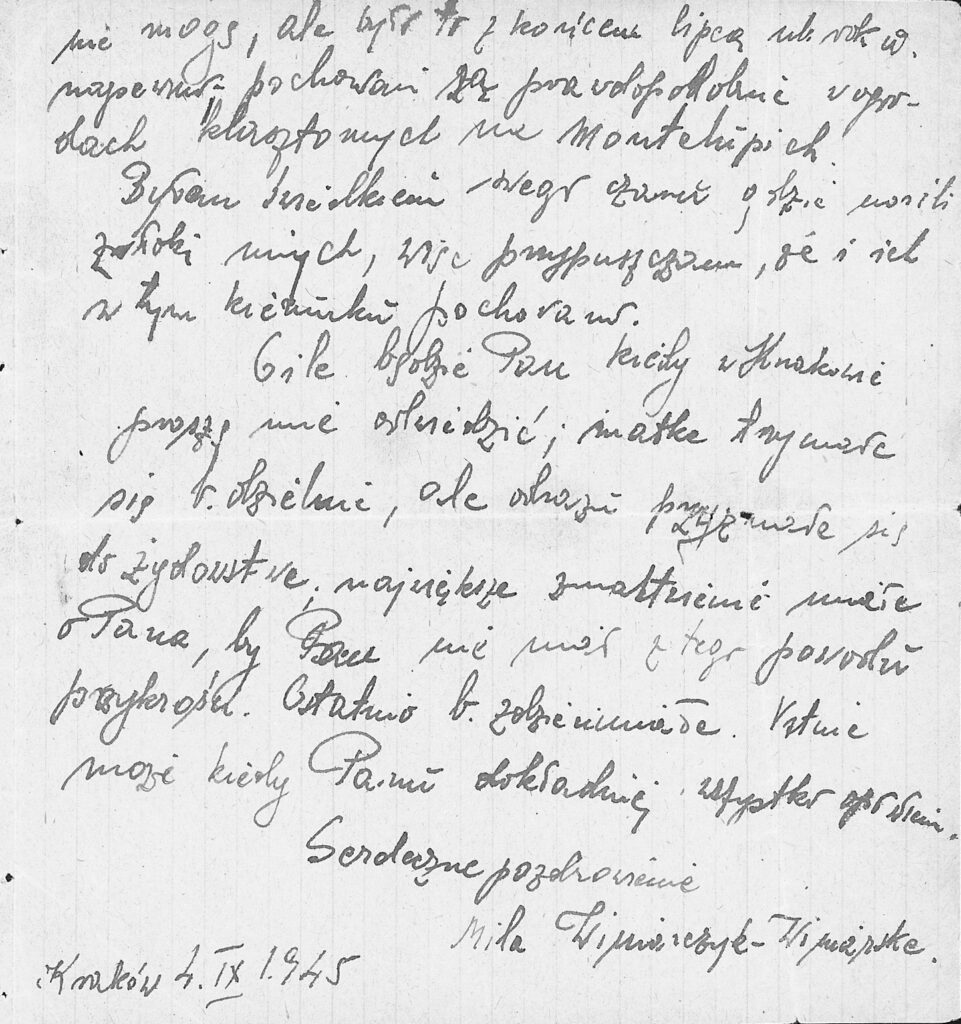 nie mogę, ale było to z końcem lipca ub. roku
napewno pochowani są prawdopodobnie w ogro-
dach klasztornych na Montelupich.
Byłam świadkiem swego czasu gdzie nosili
zwłoki innych, więc przypuszczam, że i ich
w tym kierunku pochowano.
O ile będzie Pan kiedy w Krakowie
proszę mnie odwiedzić; matka trzymała
się b. dzielnie, ale odrazu przyznała się
do żydowstwa, największe zmartwienie miała
o Pana, by Pan nie miał z tego powodu
przykrości. Ostatnio b. zdziecinniała. Ustnie
może kiedy Panu dokładniej wszystko opowiem.
Serdeczne pozdrowienie
Mila Winiarczyk-
Kraków 4. IX 1945